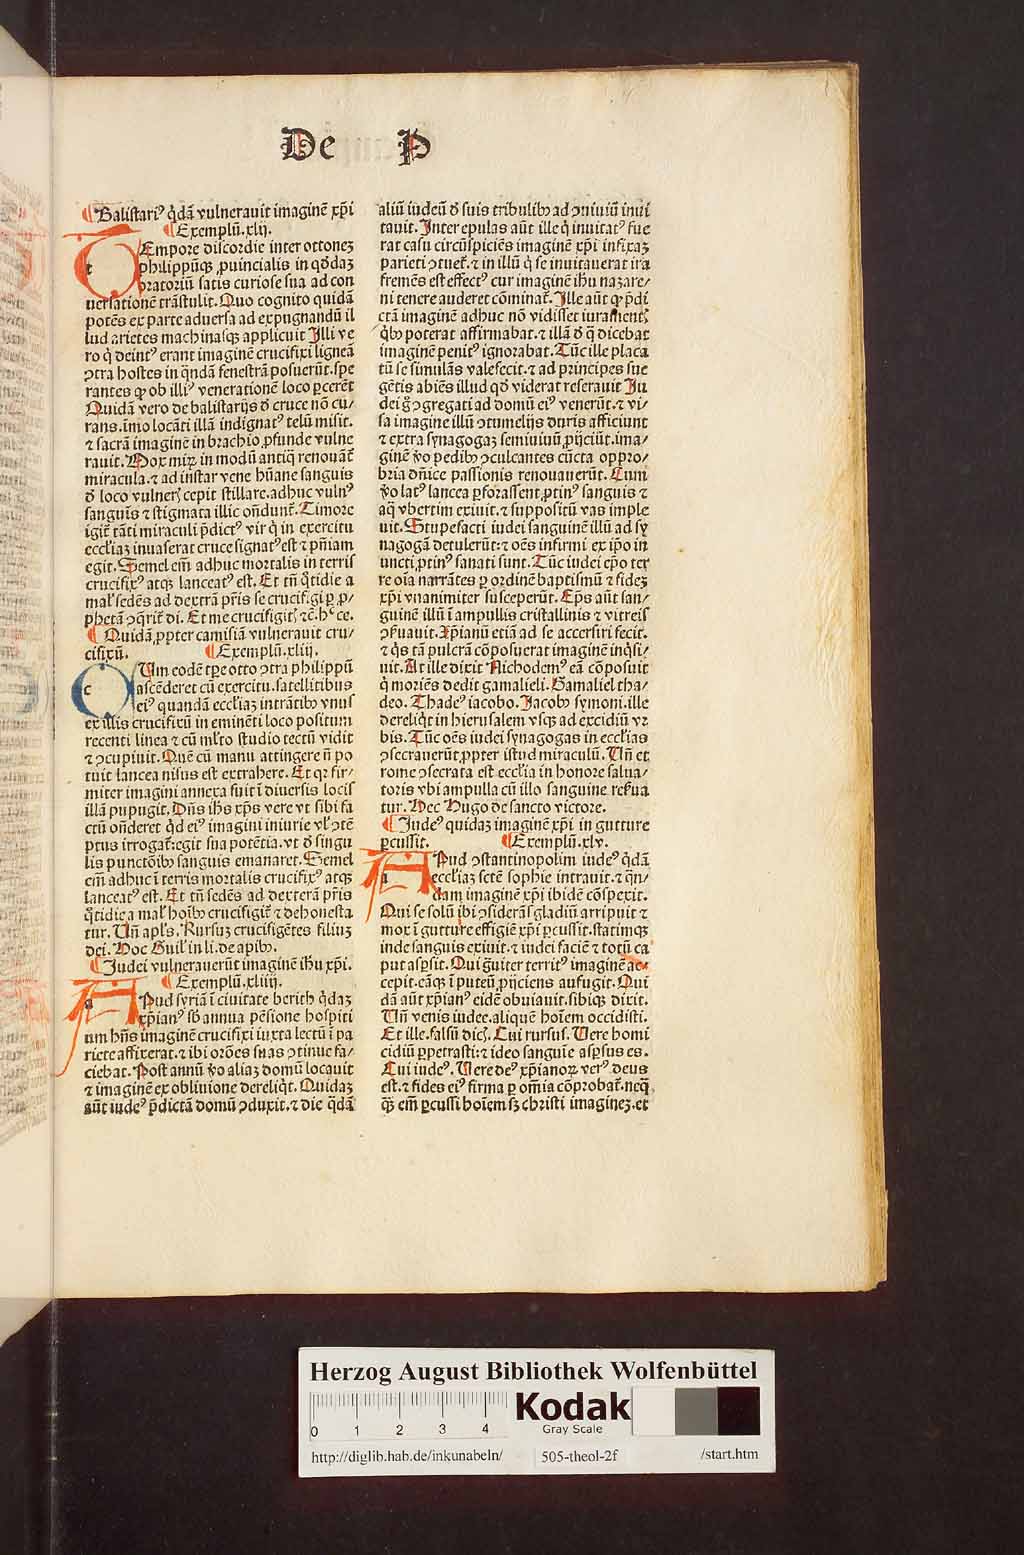 De P
¶ Balistari⁹ q̃dã vulnerauit imaginẽ xp̃i
¶ Exemplũ. xlij.
TEmpore discordie inter ottonez
philippũq; ꝓuincialis in qd̃daz
oratoriũ satis curiose sua ad con
uersationẽ trãstulit. Quo cognito quidã
potẽs ex parte aduersa ad expugnandũ il
lud arietes machinasq; applicuit Illi ve
ro q̇ deint⁹ erant imaginẽ crucifixi ligneã
ꝯtra hostes in q̃ndã fenestrã posuerũt. spe
rantes ꝙ ob illi⁹ venerationẽ loco ꝑcerẽt
Quidã vero de balistarijs đ cruce nõ cu/
rans. imo locãti illã indignat⁹ telũ misit.
⁊ sacrã imaginẽ in brachio ꝓfunde vulne
rauit. Mox miꝝ in modũ antiq̇ renouãt̃
miracula. ⁊ ad instar vene hũane sanguis
đ loco vulneꝝ cepit stillare. adhuc vuln⁹
sanguis ⁊ stigmata illic oñdunt̃. Timore
igit̃ tãti miraculi p̃dict⁹ vir q̇ in exercitu
eccl̃iaz inuaserat cruce signat⁹ est ⁊ pñiam
egit. Semel em̃ adhuc mortalis in terris
crucifix⁹ atq; lanceat⁹ est. Et tñ q̃tidie a
mal̃ sedẽs ad dextrã pr̃is se crucif. gi ꝑ ꝓ/
phetã ꝯq̃rit̃ di. Et me crucifigit̃ ⁊c̃. hᶜ ce.
¶ Quidã ꝓpter camisiã vulnerauit cru/
cifixũ. ¶ Exemplũ. xliij.
CUm eodẽ tꝑe otto ꝯtra philippũ
ascẽderet cũ exercitu. satellitibus
ei⁹ quandã eccl̃iaz intrãtib⁹ vnus
ex illis crucifixũ in eminẽti loco positum
recenti linea ⁊ cũ ml̃to studio tectũ vidit
⁊ ꝯcupiuit. Quẽ cũ manu attingere ñ po
tuit lancea nisus est extrahere. Et qꝛ fir/
miter imagini annexa fuit ĩ diuersis locis
illã pupugit. Dñs ihs̃ xp̃s vere vt sibi fa
ctũ oñderet q̇d ei⁹ imagini iniurie vl̃ ꝯtẽ
ptus irrogat̃: egit sua potẽtia. vt đ singu
lis punctõib⁹ sanguis emanaret. Semel
em̃ adhuc ĩ terris mortalis crucifix⁹ atq;
lanceat⁹ est. Et tñ sedẽs ad dexterã pr̃is
q̃tidie a mal̃ hoĩb⁹ crucifigit̃ ⁊ dehonesta
tur. Uñ apl̃s. Rursuz crucifigẽtes filiuz
dei. Hoc Guil̃ in li. de apib⁹.
¶ Iudei vulnerauerũt imaginẽ ihũ xp̃i.
¶ Exemplũ. xliiij.
APud syriã ĩ ciuitate berith q̃daz
xp̃ian⁹ sb̃ annua pẽsione hospiti
um hñs imaginẽ crucifixi iuxta lectũ ĩ pa
riete affixerat. ⁊ ibi orõnes suas ꝯtinue fa/
ciebat. Post annũ v̊o aliaz domũ locauit
⁊ imaginẽ ex obliuione dereliq̇t. Quidaz
aũt iude⁹ p̃dictã domũ ꝯduxit. ⁊ die q̃dã
aliũ iudeũ đ suis tribulib⁹ ad ꝯuiuiũ inui
tauit. Inter epulas aũt ille q̇ inuitat⁹ fue
rat casu circũspiciẽs imaginẽ xp̃i infixaz
parieti ꝯtuet̃. ⁊ in illũ q̇ se inuitauerat ira
fremẽs est effect⁹ cur imaginẽ ihũ nazare/
ni tenere auderet cõminat̃. Ille aũt qꝫ p̃di
ctã imaginẽ adhuc nõ vidisset iuramentꝭ
q̇b⁹ poterat affirmabat. ⁊ illã đ q̃ dicebat
imaginẽ penit⁹ ignorabat. Tũc ille placa
tũ se simulãs valefecit. ⁊ ad principes sue
gẽtis abiẽs illud qđ viderat reserauit Iu
dei g̊ ꝯgregati ad domũ ei⁹ venerũt. ⁊ vi/
sa imagine illũ ꝯtumelijs duris afficiunt
⁊ extra synagogaz semiuiuũ ꝓijciũt. ima/
ginẽ v̊o pedib⁹ ꝯculcantes cũcta oppro/
bria dñice passionis renouauerũt. Cum
v̊o lat⁹ lancea ꝑforassent ꝓtin⁹ sanguis ⁊
aq̃ vbertim exiuit. ⁊ suppositũ vas imple
uit. Stupefacti iudei sanguinẽ illũ ad sy
nagogã detulerũt: ⁊ oẽs infirmi ex ip̃o in
uncti ꝓtin⁹ sanati sunt. Tũc iudei ep̃o ter
re oĩa narrãtes ꝑ ordinẽ baptismũ ⁊ fidez
xp̃i vnanimiter susceperũt. Ep̃s aũt san/
guinẽ illũ ĩ ampullis cristallinis ⁊ vitreis
ꝯseruauit. Xp̃ianũ etiã ad se accersiri fecit.
⁊ q̇s tã pulcrã cõposuerat imaginẽ inq̇si/
uit. At ille dixit Nichodem⁹ eã cõposuit
q̇ moriẽs dedit gamalieli. Gamaliel tha/
deo. Thade⁹ iacobo. Iacob⁹ symoni. ille
dereliq̇t in hierusalem vsq; ad excidiũ vr
bis. Tũc oẽs iudei synagogas in eccl̃ias
ꝯsecrauerũt ꝓpter istud miraculũ. Uñ et
rome ꝯsecrata est eccl̃ia in honore salua/
toris vbi ampulla cũ illo sanguine reſ̃ua
tur. Hec Hugo de sancto victore.
¶ Iude⁹ quidaz imaginẽ xp̃i in gutture
ꝑcussit. ¶ Exemplũ. xlv.
APud ꝯstantinopolim iude⁹ q̃dã
eccl̃iaz sctẽ sophie intrauit. ⁊ q̃n/
dam imaginẽ xp̃i ibidẽ cõspexit.
Qui se solũ ibi ꝯsiderãs gladiũ arripuit ⁊
mox ĩ gutture effigiẽ xp̃i ꝑcussit. statimq;
inde sanguis exiuit. ⁊ iudei faciẽ ⁊ totũ ca
put asp̃sit. Qui g̃uiter territ⁹ imaginẽ ac/
cepit. eãq; ĩ puteũ ꝓijciens aufugit. Qui
dã aũt xp̃ian⁹ eidẽ obuiauit. sibiq; dixit.
Uñ venis iudee. aliquẽ hoĩem occidisti.
Et ille. falsũ dicꝭ. Cui rursus. Uere homi
cidiũ ꝑpetrasti: ⁊ ideo sanguĩe asp̃sus es.
Cui iude⁹. Uere de⁹ xp̃ianoꝝ ver⁹ deus
est. ⁊ fides ei⁹ firma ꝑ om̃ia cõprobat̃. neq̃
q̃; em̃ ꝑcussi hoĩem sꝫ christi imaginez. et
Herzog August Bibliothek Wolfenbüttel
0 1 2 3 4 Kodak
Gray Scale
http://diglib.hab.de/inkunabeln/ 505-theol-2f /start.htm